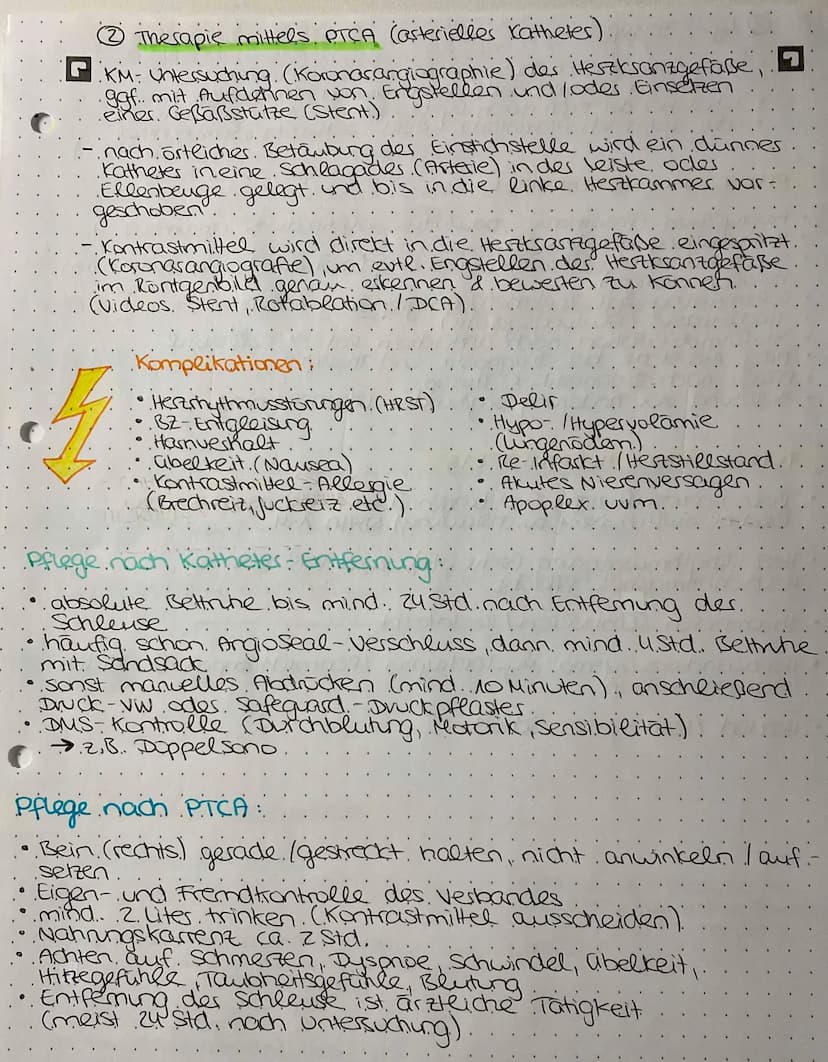 ② Therapie mittels PTCA (arterieller Katheter)
KM-Untersuchung (Koronarangiographie) der Herzkranzgefäße,
ggf. mit Aufdehnen von Engstellen und/oder Einsetzen
einer Gefäßstütze (Stent)
- nach örtlicher Betäubung der Einstichstelle wird ein dünner
Katheter in eine Schlagader (Arterie) in der Leiste oder
Ellenbeuge gelegt und bis in die linke Herzkammer vor-
geschoben
- Kontrastmittel wird direkt in die Herzkranzgefäße eingespritzt
(Koronarangiografie), um evtl. Engstellen der Herzkranzgefäße
im Röntgenbild genau erkennen & bewerten zu können
(Videos Stent, Rotablation / DCA)
Komplikationen:
• Herzrhythmusstörungen (HRST)
• BZ-Entgleisung
• Harnverhalt
• Übelkeit (Nausea)
• Kontrastmittel-Allergie
(Brechreiz, Juckreiz etc.)
• Delir
• Hypo- /Hypervolämie
(Lungenödem)
• Re-Infarkt / Herzstillstand
• Akutes Nierenversagen
• Apoplex uvm.
Pflege nach Katheter-Entfernung:
• absolute Bettruhe bis mind. 24 Std. nach Entfernung der
Schleuse
• häufig schon AngioSeal-Verschluss, dann mind. 4 Std. Bettruhe
mit Sandsack
• sonst manuelles Abdrücken (mind. 10 Minuten), anschließend
Druck-VW oder Safeguard-Druckpflaster
• DMS-Kontrolle (Durchblutung, Motorik, Sensibilität)
→ z.B. Doppelsono
Pflege nach PTCA:
• Bein (rechts) gerade/gestreckt halten, nicht anwinkeln / auf-
setzen
• Eigen- und Fremdkontrolle des Verbandes
• mind. 2 Liter trinken (Kontrastmittel ausscheiden)
• Nahrungskarrenz ca. 2 Std.
• Achten auf Schmerzen, Dyspnoe, Schwindel, Übelkeit,
Hitzegefühle, Taubheitsgefühle, Blutung
• Entfernung der Schleuse ist ärztliche Tätigkeit
(meist 24 Std. nach Untersuchung)